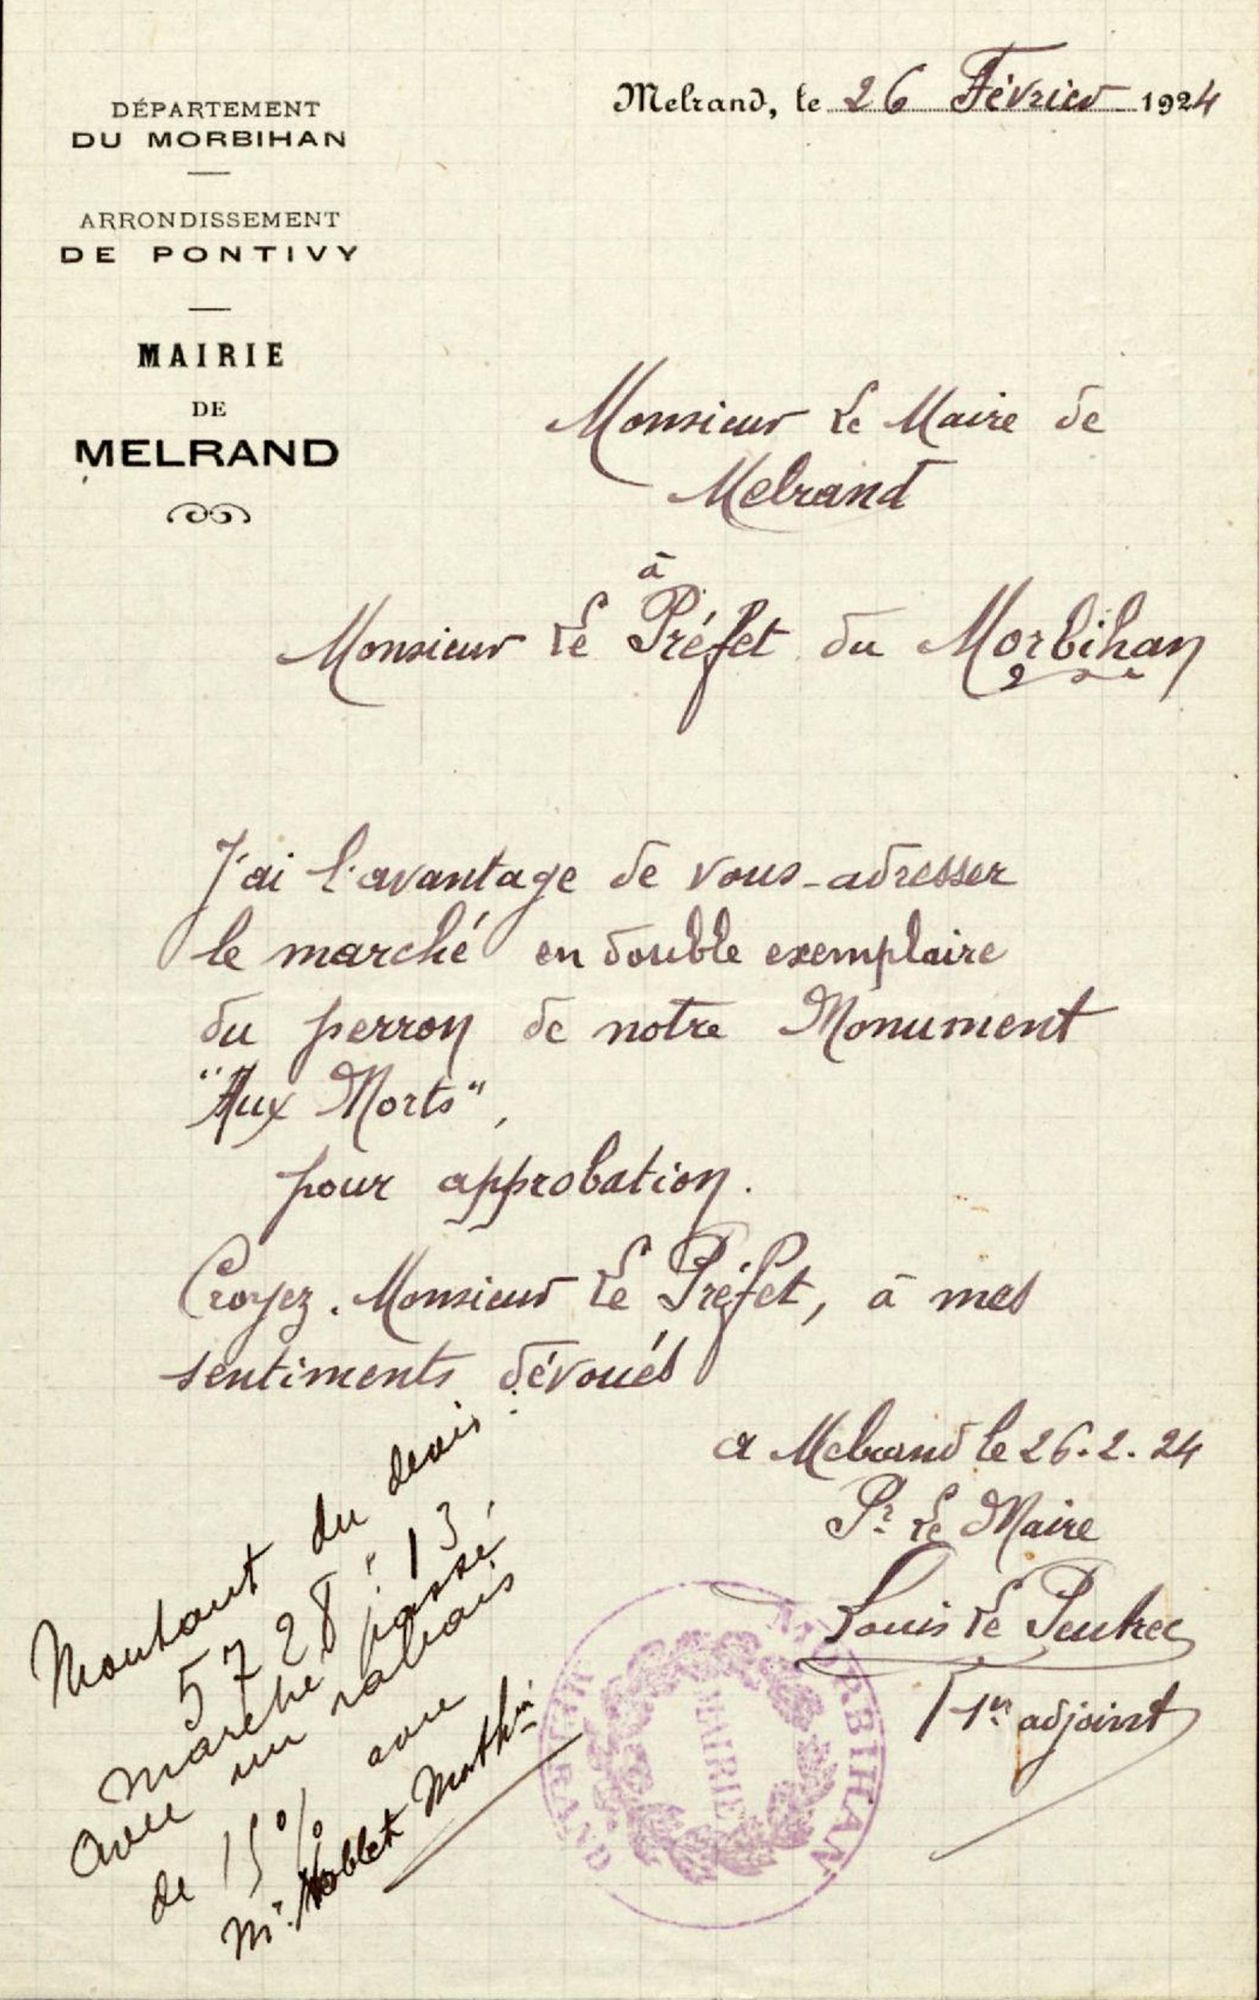 DÉPARTEMENT
DU MORBIHAN
ARRONDISSEMENT
DE PONTIVY
MAIRIE
DE
MELRAND
Melrand, le 26 Février 1924
Monsieur Le Maire de
Melrand
à
Monsieur Le Préfet du Morbihan
J'ai l'avantage de vous adresser
le marché en double exemplaire
du perron de notre Monument
"Aux Morts",
pour approbation.
Croyez. Monsieur Le Préfet, à mes
sentiments dévoués
a Melrand le 26.2.24
Pr Le Maire
Louis Le Peutrec
1er adjoint
Montant du devis :
5728 : 13
marché passé,
avec un rabais
de 15% avec
Mr. Noblet Mathin
MAIRIE
MORBIHAN